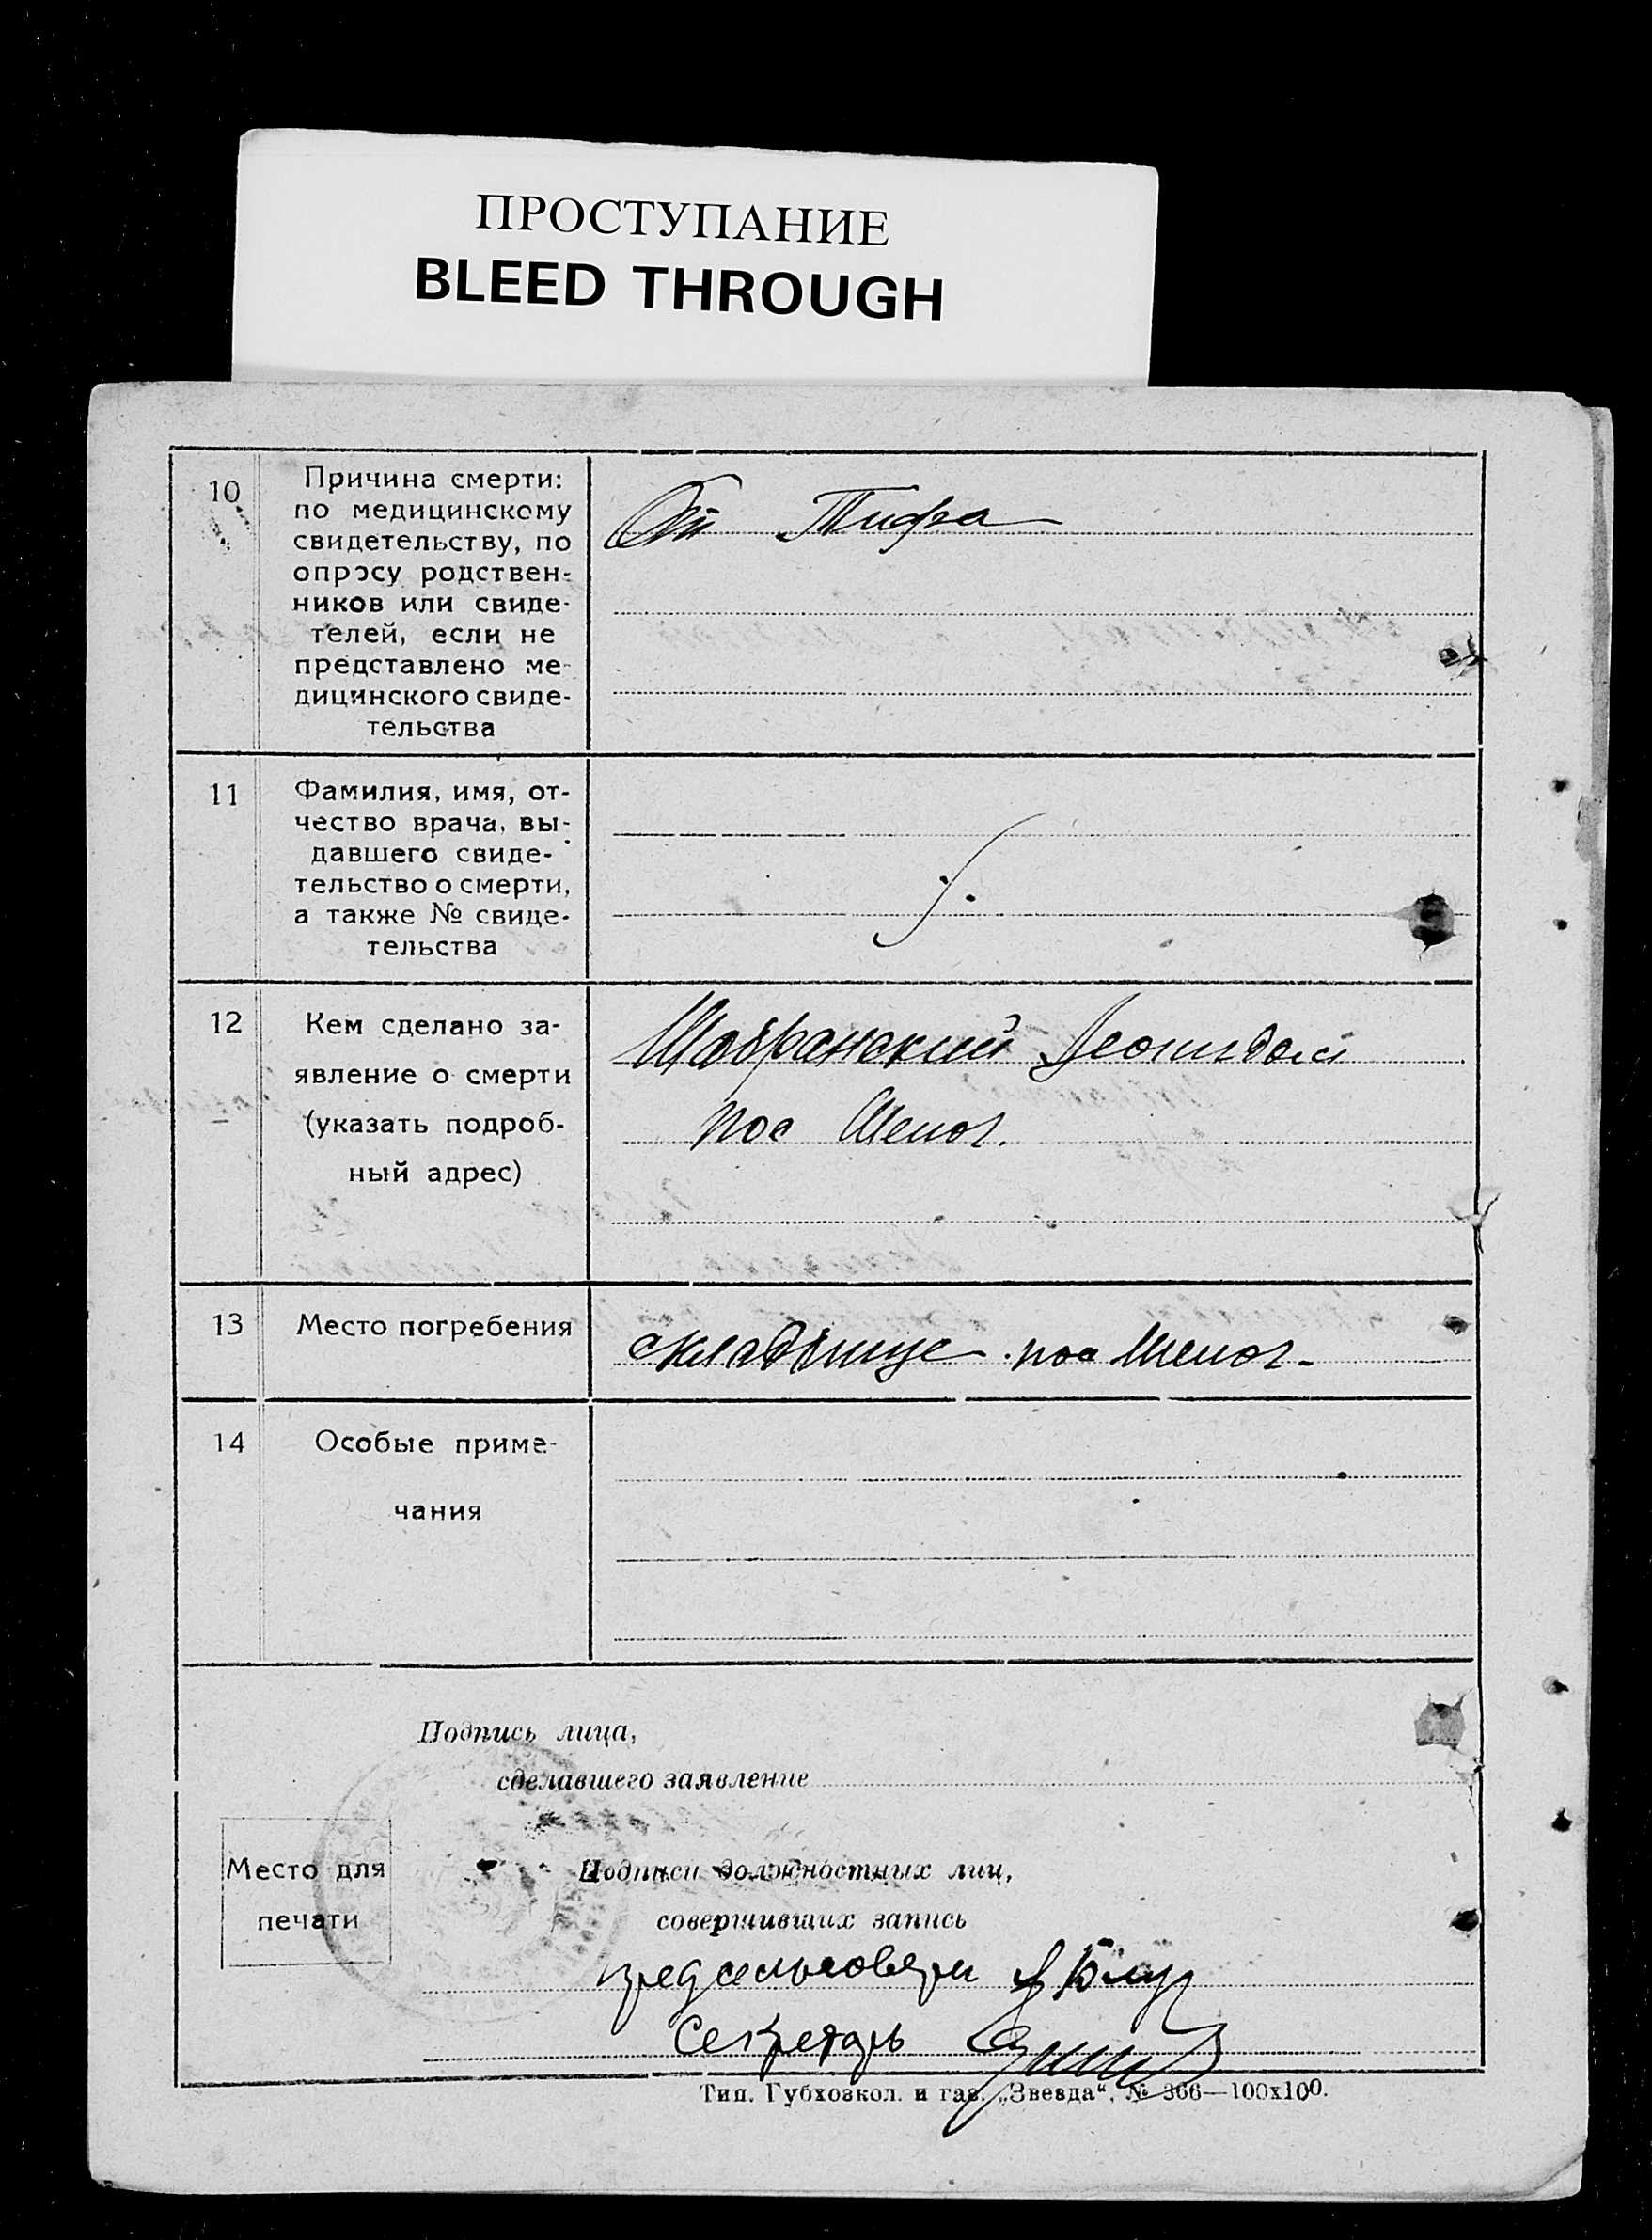 ПРОСТУПАНИЕ
BLEED THROUGH
10
Причина смерти:
по медицинскому
свидетельству, по
опросу родствен-
ников или свиде-
телей, если не
представлено ме-
дицинского свиде-
тельства
От Тифа
11
Фамилия, имя, от-
чество врача, вы-
давшего свиде-
тельство о смерти,
а также № свиде-
тельства
12
Кем сделано за-
явление о смерти
(указать подроб-
ный адрес)
Леонидом
пос
13
Место погребения
кладбище пос
14
Особые приме-
чания
Подпись лица,
сделавшего заявление
Место для
печати
Подписи должностных лиц,
совершивших запись
Секретарь
Тип. Губхозкол. и газ. „Звезда“, № 366—100х100.